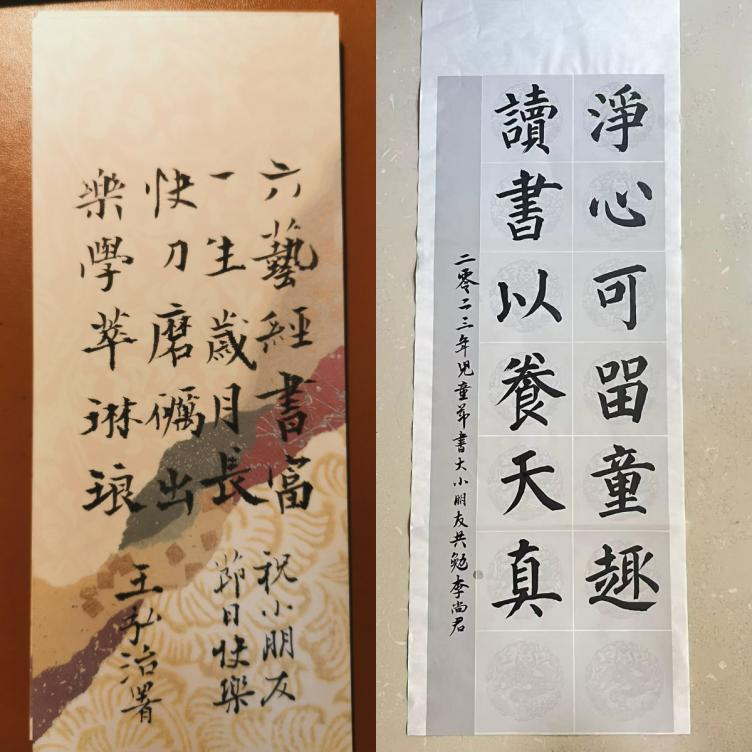 六藝經書富
一生歲月長
快刀磨礪出
樂學萃琳琅
祝小朋友
節日快樂
王弘治署
淨心可留童趣
讀書以養天真
二零二三年兒童節書大小朋友共勉李尚君